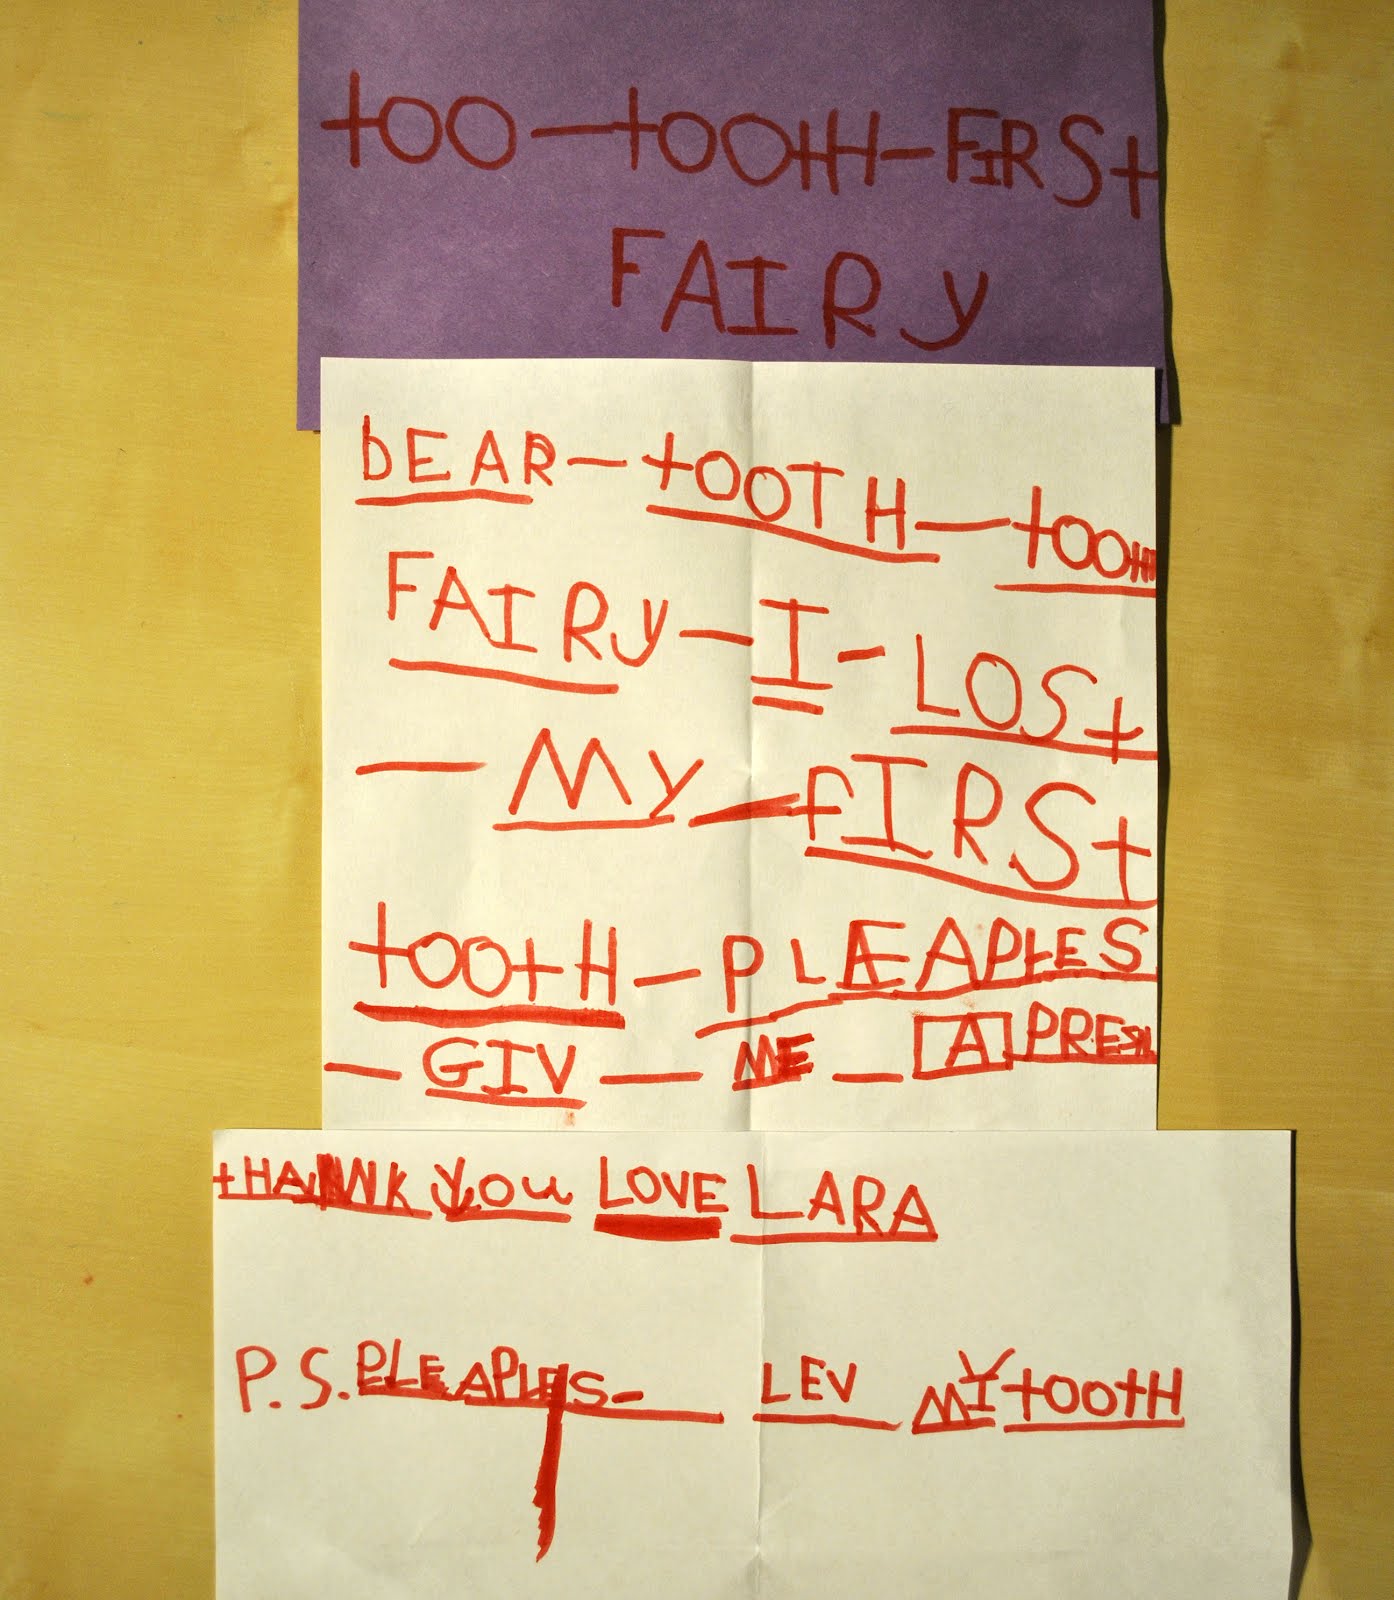 tOO — tOOtH — FIRSt
FAIRy
bEAR — tOOTH — tOOtH
FAIRy — I — LOSt
— My — fIRSt
tOOtH — PLEAPLES
— GIV — ME — A PRESN
tHANNK you LOVE LARA
P.S. PLEAPLES — LEV MY tOOtH